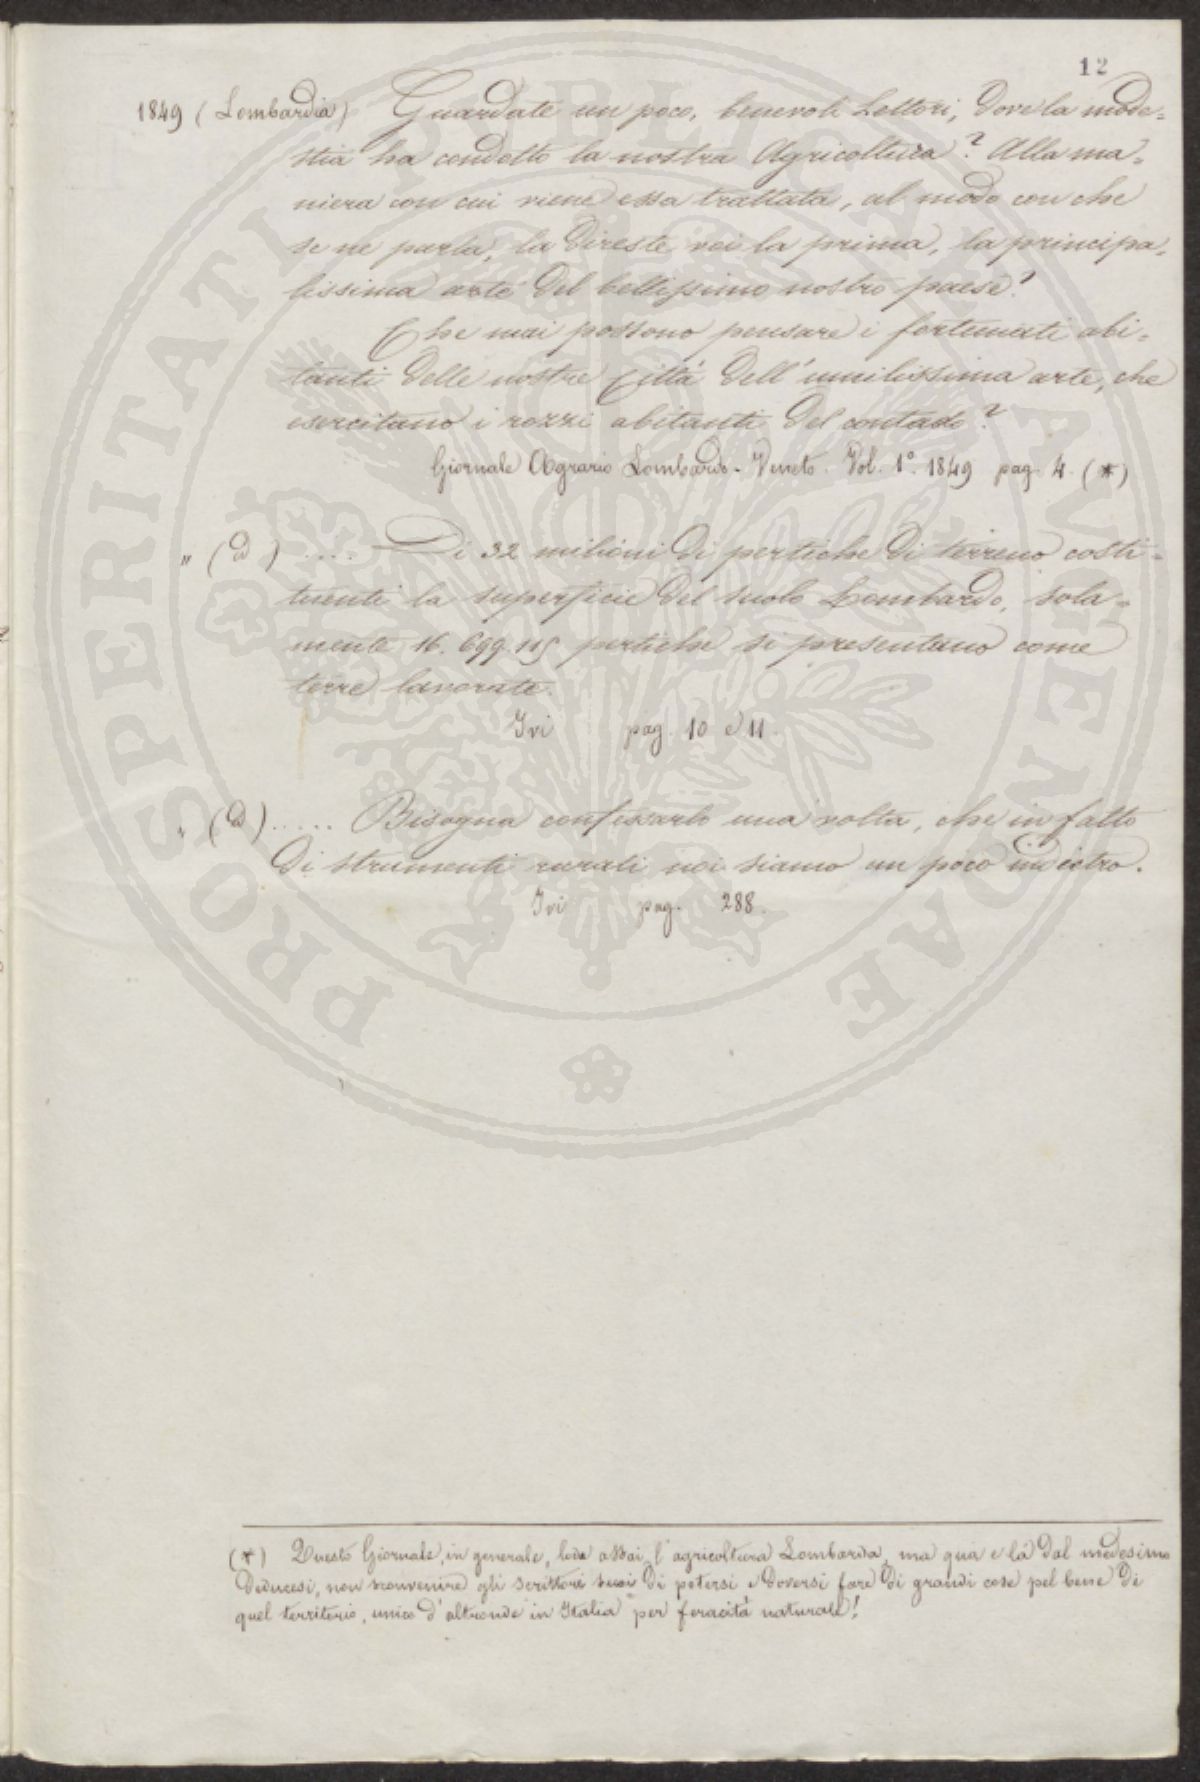 12
1849 (Lombardia) Guardate un poco, benevoli Lettori, dove la mode=
stia ha condotto la nostra Agricoltura? Alla ma=
niera con cui viene essa trattata, al modo con che
se ne parla, la direste voi la prima, la principa=
lissima arte del bellissimo nostro paese?
Che mai possono pensare i fortunati abi=
tanti delle nostre Città dell'umilissima arte, che
esercitano i rozzi abitanti del contado?
Giornale Agrario Lombardo-Veneto. Vol. 1º. 1849 pag. 4. (*)
" (d) .... Di 32 milioni di pertiche di terreno costi=
tuenti la superficie del suolo Lombardo, sola=
mente 16. 699. 115 pertiche si presentano come
terre lavorate.
Ivi pag. 10 e 11.
" (d) ..... Bisogna confessarlo una volta, che in fatto
di strumenti rurali noi siamo un poco indietro.
Ivi pag. 288.
(*) Questo Giornale, in generale, loda assai l'agricoltura Lombarda, ma qua e là dal medesimo
deducesi, non sconvenire gli scrittori suoi di potersi e doversi fare di grandi cose pel bene di
quel territorio, unico d'altronde in Italia per feracità naturale!
PROSPERITATI PUBLICAE AUGENDAE